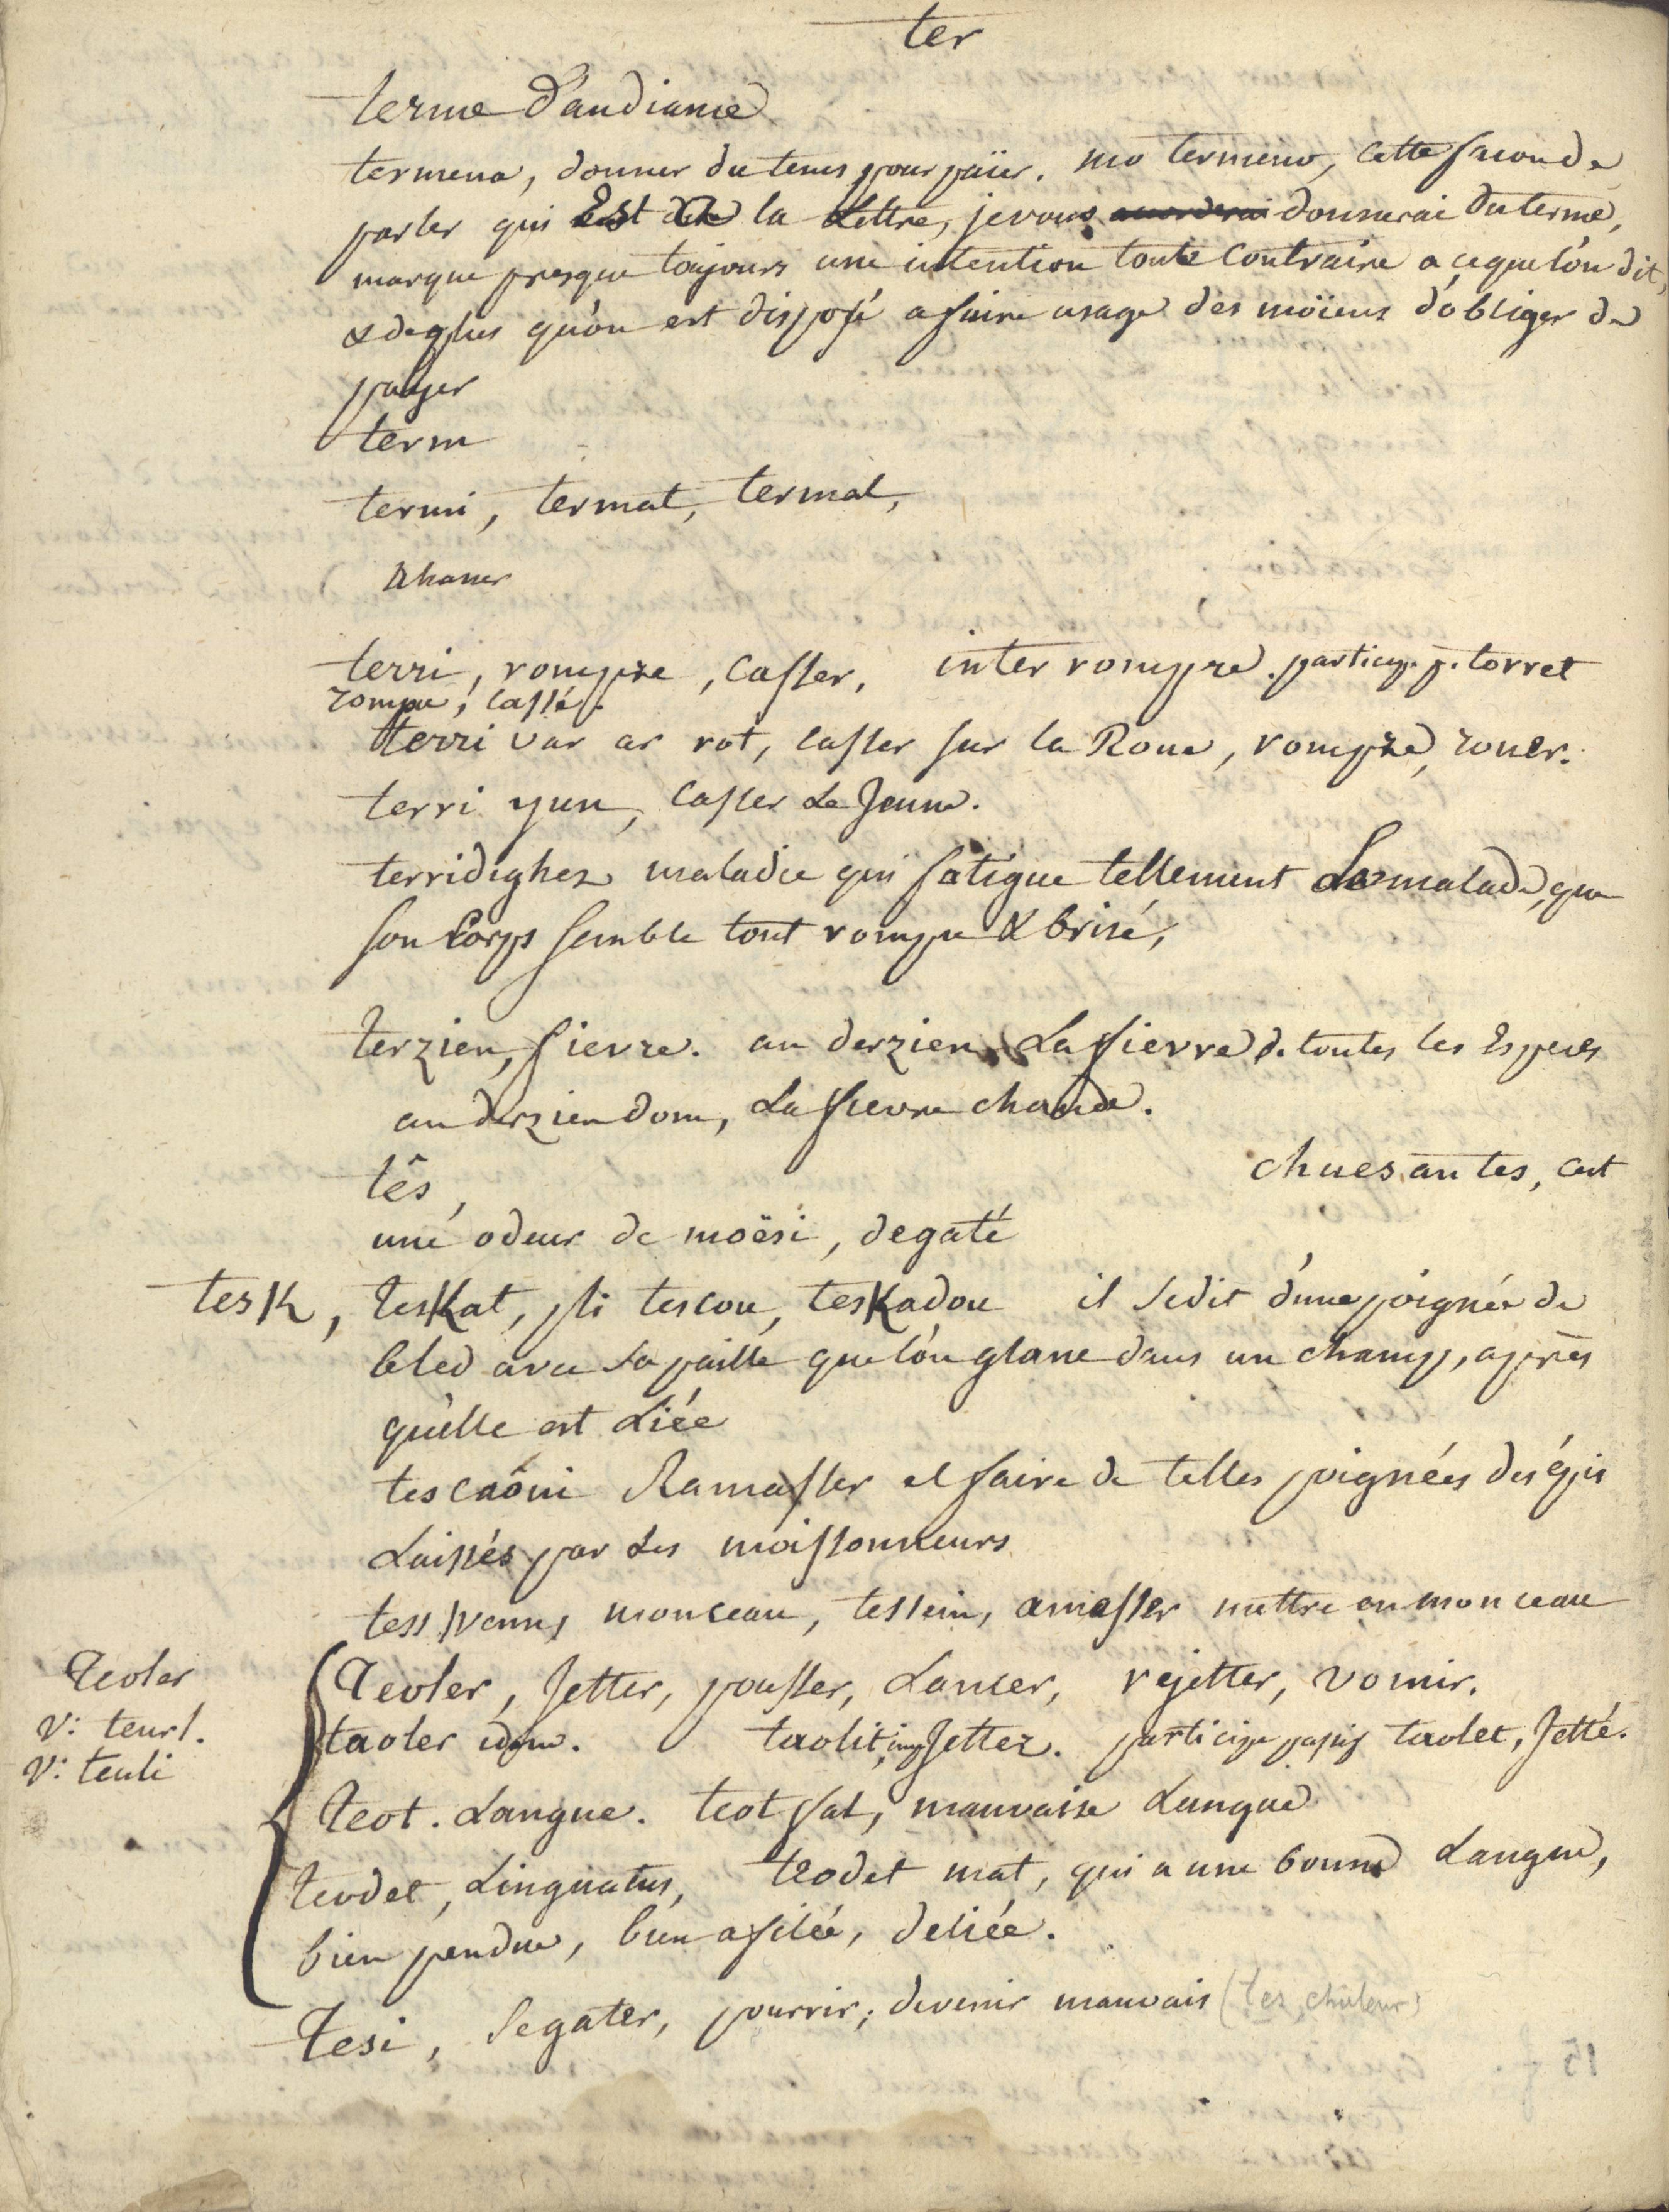 ter
terme d'audiance
termena, donner du tems pour païer. mo termeno, cette facon de
parler qui Est a la Lettre, je vous donnerai du terme,
marque presque toujours une intention toute Contraire a ceque lón dit,
& de plus qu'on est disposé a faire usage des moïens d'obliger de
paÿer
term
termi, termat, termal,
Ahaner
terri, rompre, Casser, interrompre. particip. p. torret
rompu, Cassé.
terri var ar rot, Casser sur la Roue, rompre, rouer.
terri yun, Casser Le Jeune.
terridighez maladie qui fatigue tellement Le malade, que
son Corps semble tout rompu & brisé,
terzien, fievre. an derzien La fievre de toutes les Especes
an derzien dom, La fievre chaude.
tês, chues an tes, c'est
une odeur de moësi, degaté
tesk, teskat, pli tescou, teskadou il sedit d'une poignée de
bled avec sa paille que lón glane dans un champ, après
qu'elle est Liée
tescaôui Ramasser et faire de telles poignées des épis
Laissés par Les moissonneurs
tess Vennes monceau, tessein, amasser mettre en monceau
Teoler
V: teurl.
V: teuli
Teoler, Jetter, pousser, Lancer, rejetter, vomir.
taoler idem. taolit, imp Jettez. participe passif taolet, Jetté.
Teot. Langue. teot fal, mauvaise Langue
Teodet, Linguatus, teodet mat, qui a une bonne Langue,
bien pendue, bien afilée, deliée.
Tesi, se gater, pourrir, devenir mauvais (tez, chaleur)